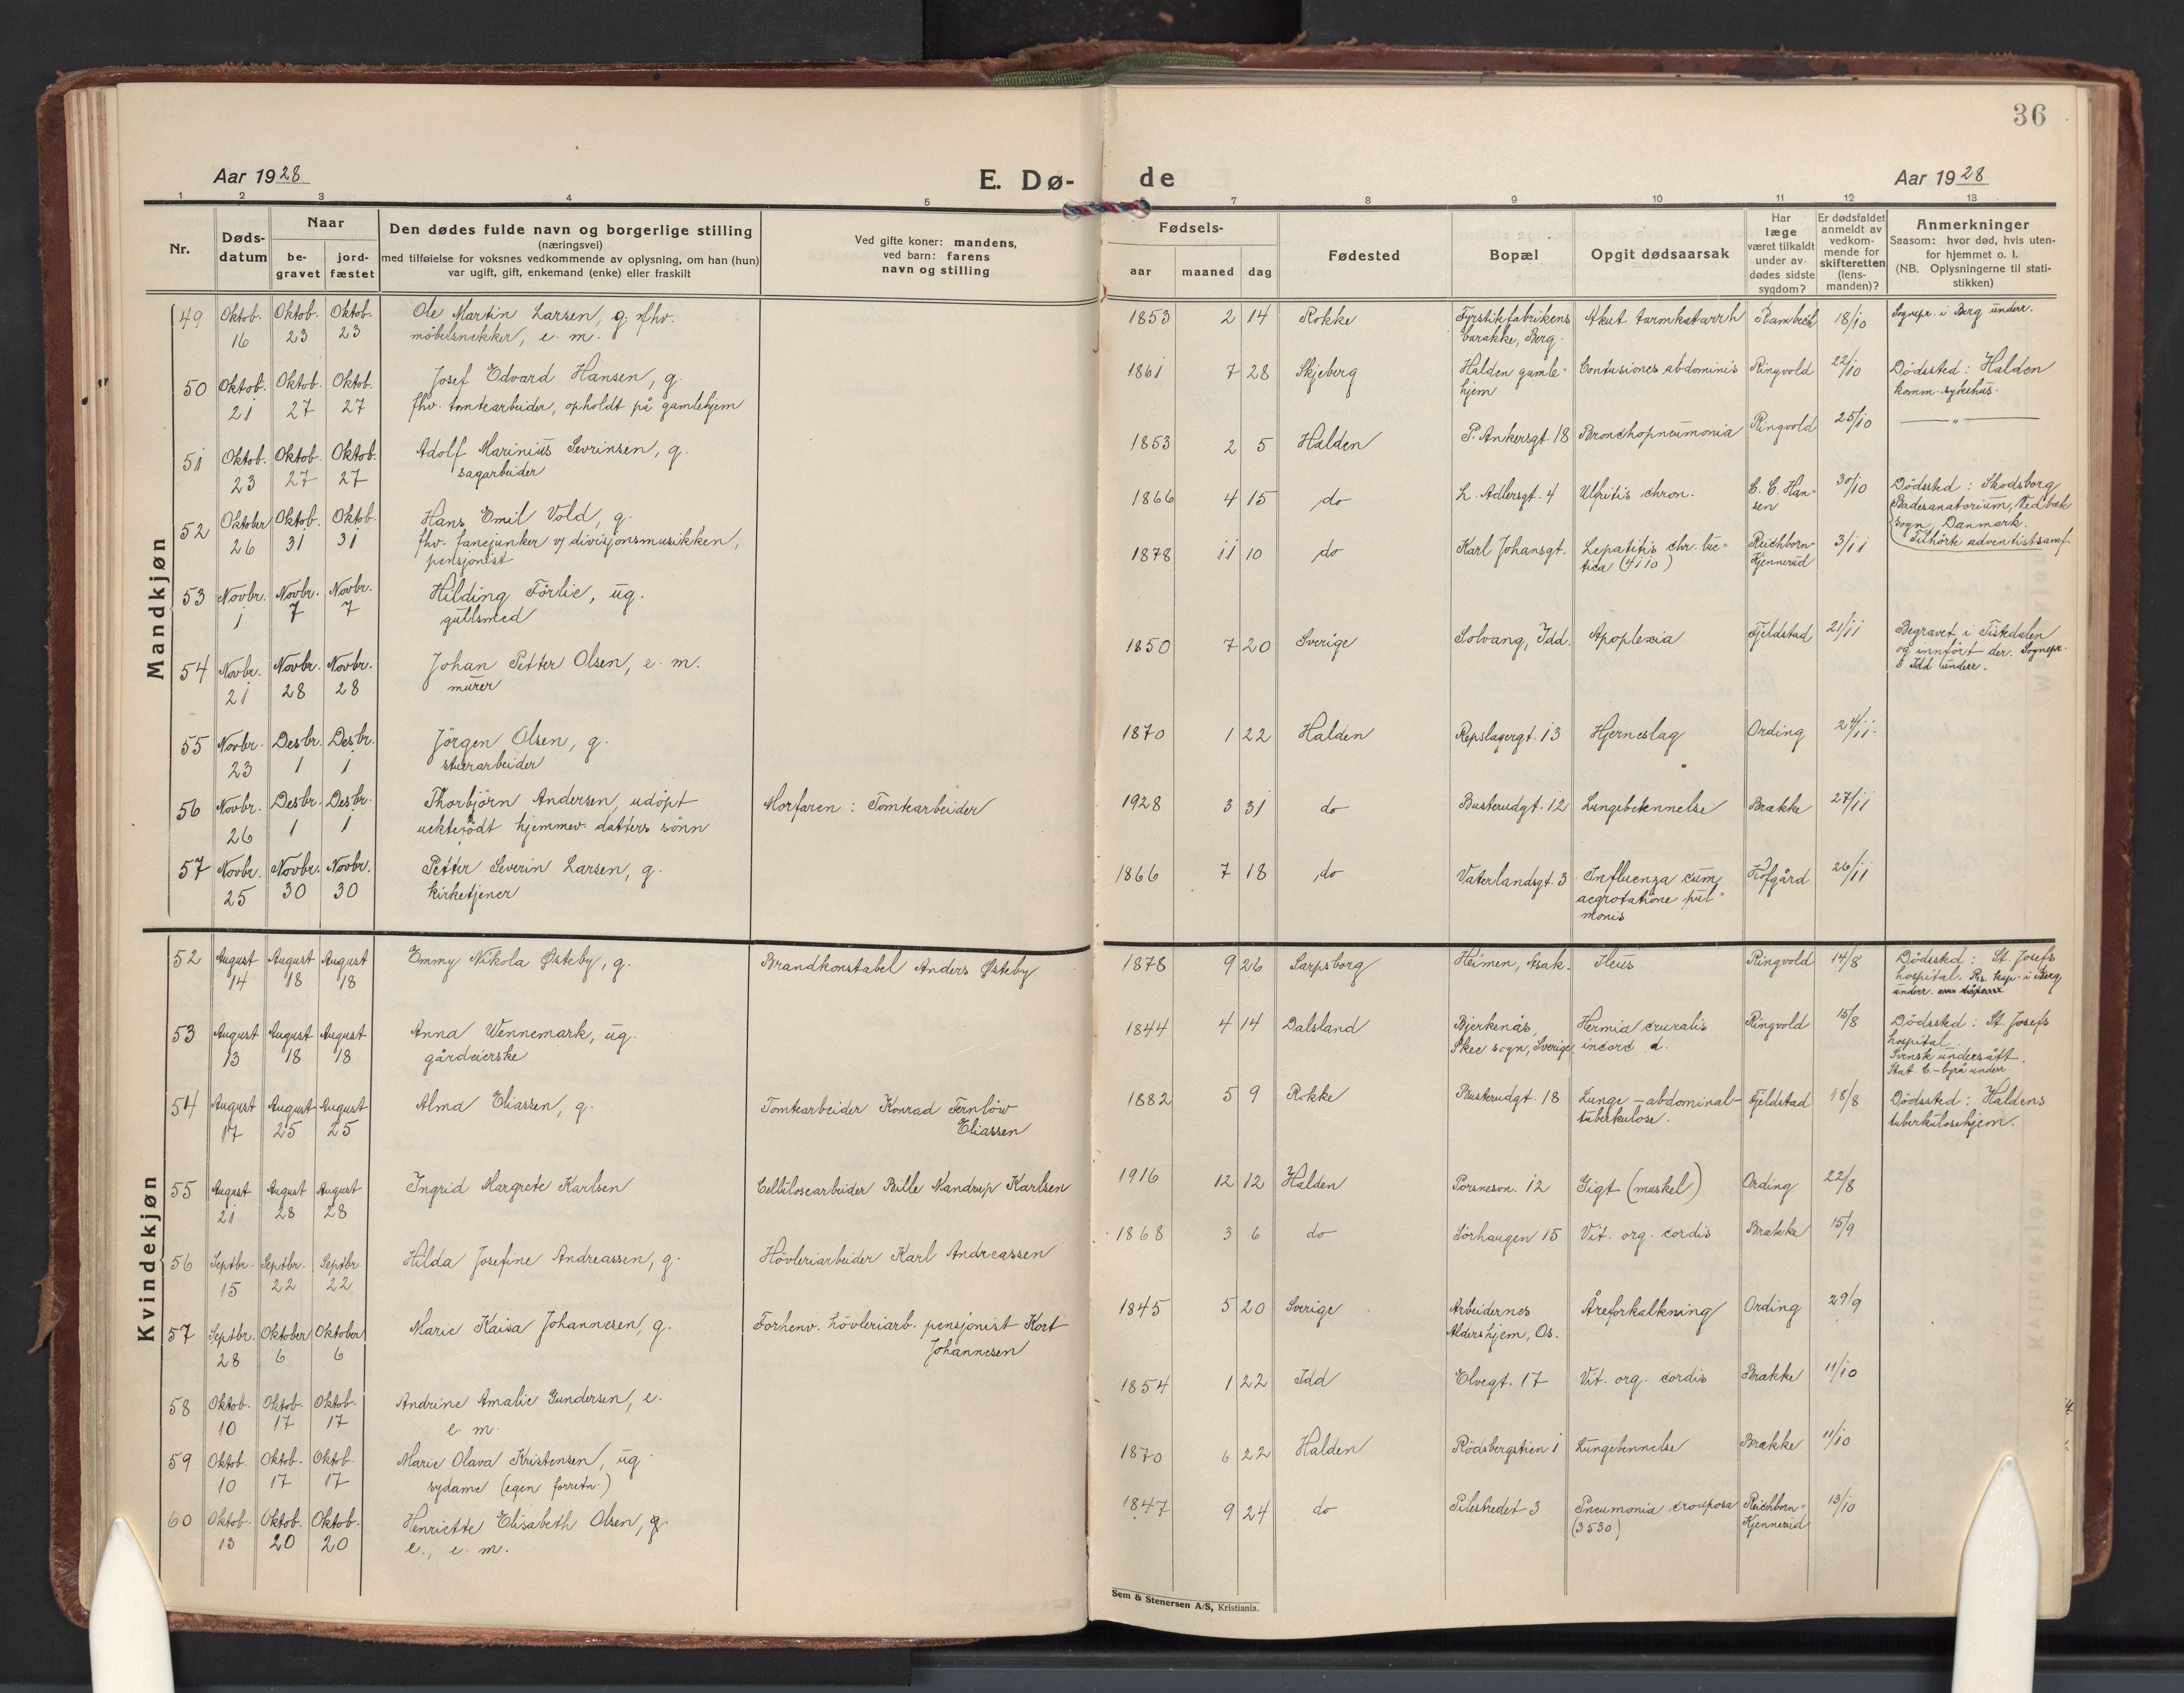 36
Aar 1928
E. Dø-
de
Aar 1928
1 2 3 4 5 7 8 9 10 11 12 13
Nr.
Døds-
datum
Naar
be-
gravet
jord-
fæstet
Den dødes fulde navn og borgerlige stilling
(næringsvei)
med tilføielse for voksnes vedkommende av oplysning, om han (hun)
var ugift, gift, enkemand (enke) eller fraskilt
Ved gifte koner: mandens,
ved barn: farens
navn og stilling
Fødsels-
aar maaned dag
Fødested
Bopæl
Opgit dødsaarsak
Har
læge
været tilkaldt
under av-
dødes sidste
sygdom?
Er dødsfaldet
anmeldt av
vedkom-
mende for
skifteretten
(lens-
manden)?
Anmerkninger
Saasom: hvor død, hvis uten-
for hjemmet o. l.
(NB. Oplysningerne til stati-
stikken)
Mandkjøn
49 Oktob. Oktob. Oktob. Ole Martin Larsen, g. fhv. 1853 2 14 Rokke Fyrstikfabrikens Akut tarmkatarrh 18/10 Sognepr. i Berg underr.
16 23 23 möbelsnekker, e. m. barakke, Berg.
50 Oktob. Oktob. Oktob. Josef Edvard Hansen, g. 1861 7 28 Skjeberg Halden gamle- Contusiones abdominis Ringvold 22/10 Dödssted: Halden
21 27 27 fhv. tomtearbeider, opholdt på gamlehjem hjem komm. sykehus.
51 Oktob. Oktob. Oktob. Adolf Marinius Sevrinsen, g. 1853 2 5 Halden P. Ankersgt. 18 Bronchopneumonia Ringvold 25/10 — " —
23 27 27 sagarbeider
52 Oktober Oktob. Oktob. Hans Emil Vold, g. 1866 4 15 do L. Adlersgt. 4 chron. C. C. Han- 30/10 Dödssted: Skodsborg
26 31 31 fhv. fanejunker v/ divisjonsmusikken, sen Badesanatorium, Vedbæk
pensjonist sogn, Danmark.
Tilhörte adventistsamf.
53 Novbr. Novbr. Novbr. Hilding Förlie, ug. 1878 11 10 do Karl Johansgt. chr. lue- Reichborn- 3/11
1 7 7 gullsmed tica (4110) Kjennerud
54 Novbr. Novbr. Novbr. Johan Petter Olsen, e. m. 1850 7 20 Sverige Solvang, Idd. Apoplexia Fjeldstad 21/11 Begravet i Tistedalen
21 28 28 murer og innfört der. Sognepr.
i Idd underr.
55 Novbr. Desbr. Desbr. Jörgen Olsen, g. 1870 1 22 Halden Repslagergt. 13 Hjerneslag Ording 24/11
23 1 1 stuerarbeider
56 Novbr. Desbr. Desbr. Thorbjörn Andersen, udöpt Morfaren: Tomtearbeider 1928 3 31 do Busterudgt. 12 Lungebetennelse Brække 27/11
26 1 1 uektefödt hjemmev. datters sönn
57 Novbr. Novbr. Novbr. Petter Severin Larsen, g. 1866 7 18 do Vaterlandsgt. 3 Influenza cum Kofgård 26/11
25 30 30 kirketjener aegrotatione pul-
monis
Kvindekjøn
52 August August August Emmy Nikola Østeby, g. Brandkonstabel Anders Østeby 1878 9 26 Sarpsborg Heimen, Asak. Ileus Ringvold 14/8 Dödssted: St. Josefs
14 18 18 hospital. Res. kap. i Berg
underr.
53 August August August Anna Wennemark, ug. 1844 4 14 Dalsland Bjerkenås, Hernia cruralis Ringvold 15/8 Dödssted: St. Josefs
13 18 18 gårdeierske Skee sogn, Sverige. incarc d. hospital.
Svensk undersått.
Stat. C-byrå underr.
54 August August August Alma Eliassen, g. Tomtearbeider Konrad Fernlöw 1882 5 9 Rokke Busterudgt. 18 Lunge-abdominal- Fjeldstad 18/8 Dödssted: Haldens
17 25 25 Eliassen tuberkulose. tuberkulosehjem.
55 August August August Ingrid Margrete Karlsen Cellulosearbeider Bille Nandrup Karlsen 1916 12 12 Halden Porsneson. 12 Gigt (muskel) Ording 22/8
21 28 28
56 Septbr. Septbr. Septbr. Hilda Josefine Andreassen, g. Hövleriarbeider Karl Andreassen 1868 3 6 do Sörhaugen 15 Vit. org. cordis Brække 15/9
15 22 22
57 Septbr. Oktober Oktober Marie Kaisa Johannesen, g. Forhenv. hövleriarb. pensjonist Kort 1845 5 20 Sverige Arbeidernes Åreforkalkning Ording 29/9
28 6 6 Johannesen Aldershjem, Os.
58 Oktob. Oktob. Oktob. Andrine Amalie Gundersen, e. 1854 1 22 Idd Elvegt. 17 Vit. org. cordis Brække 11/10
10 17 17 e. m.
59 Oktob. Oktob. Oktob. Marie Olava Kristensen, ug. 1870 6 22 Halden Rödsbergstien 1 Lungebennelse Brække 11/10
10 17 17 sydame (egen forretn.)
60 Oktob. Oktob. Oktob. Henriette Elisabeth Olsen, g. 1847 9 24 do Pilestredet 3 Pneumonia crouposa Reichborn- 13/10
13 20 20 e., e. m. (3530) Kjennerud
Sem & Stenersen A/S, Kristiania.